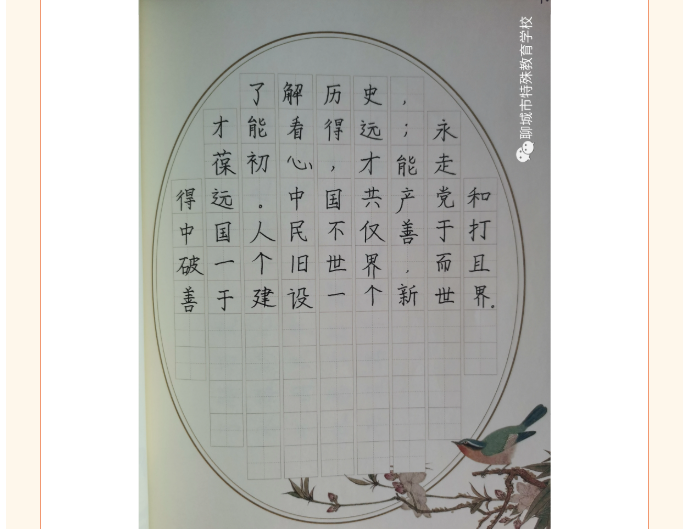 了解历史,
才能看得远;永
葆初心,才能走
得远。中国共产党和
中国人民不仅善于打
破一个旧世界,而且
善于建设一个新世界.
聊城市特殊教育学校